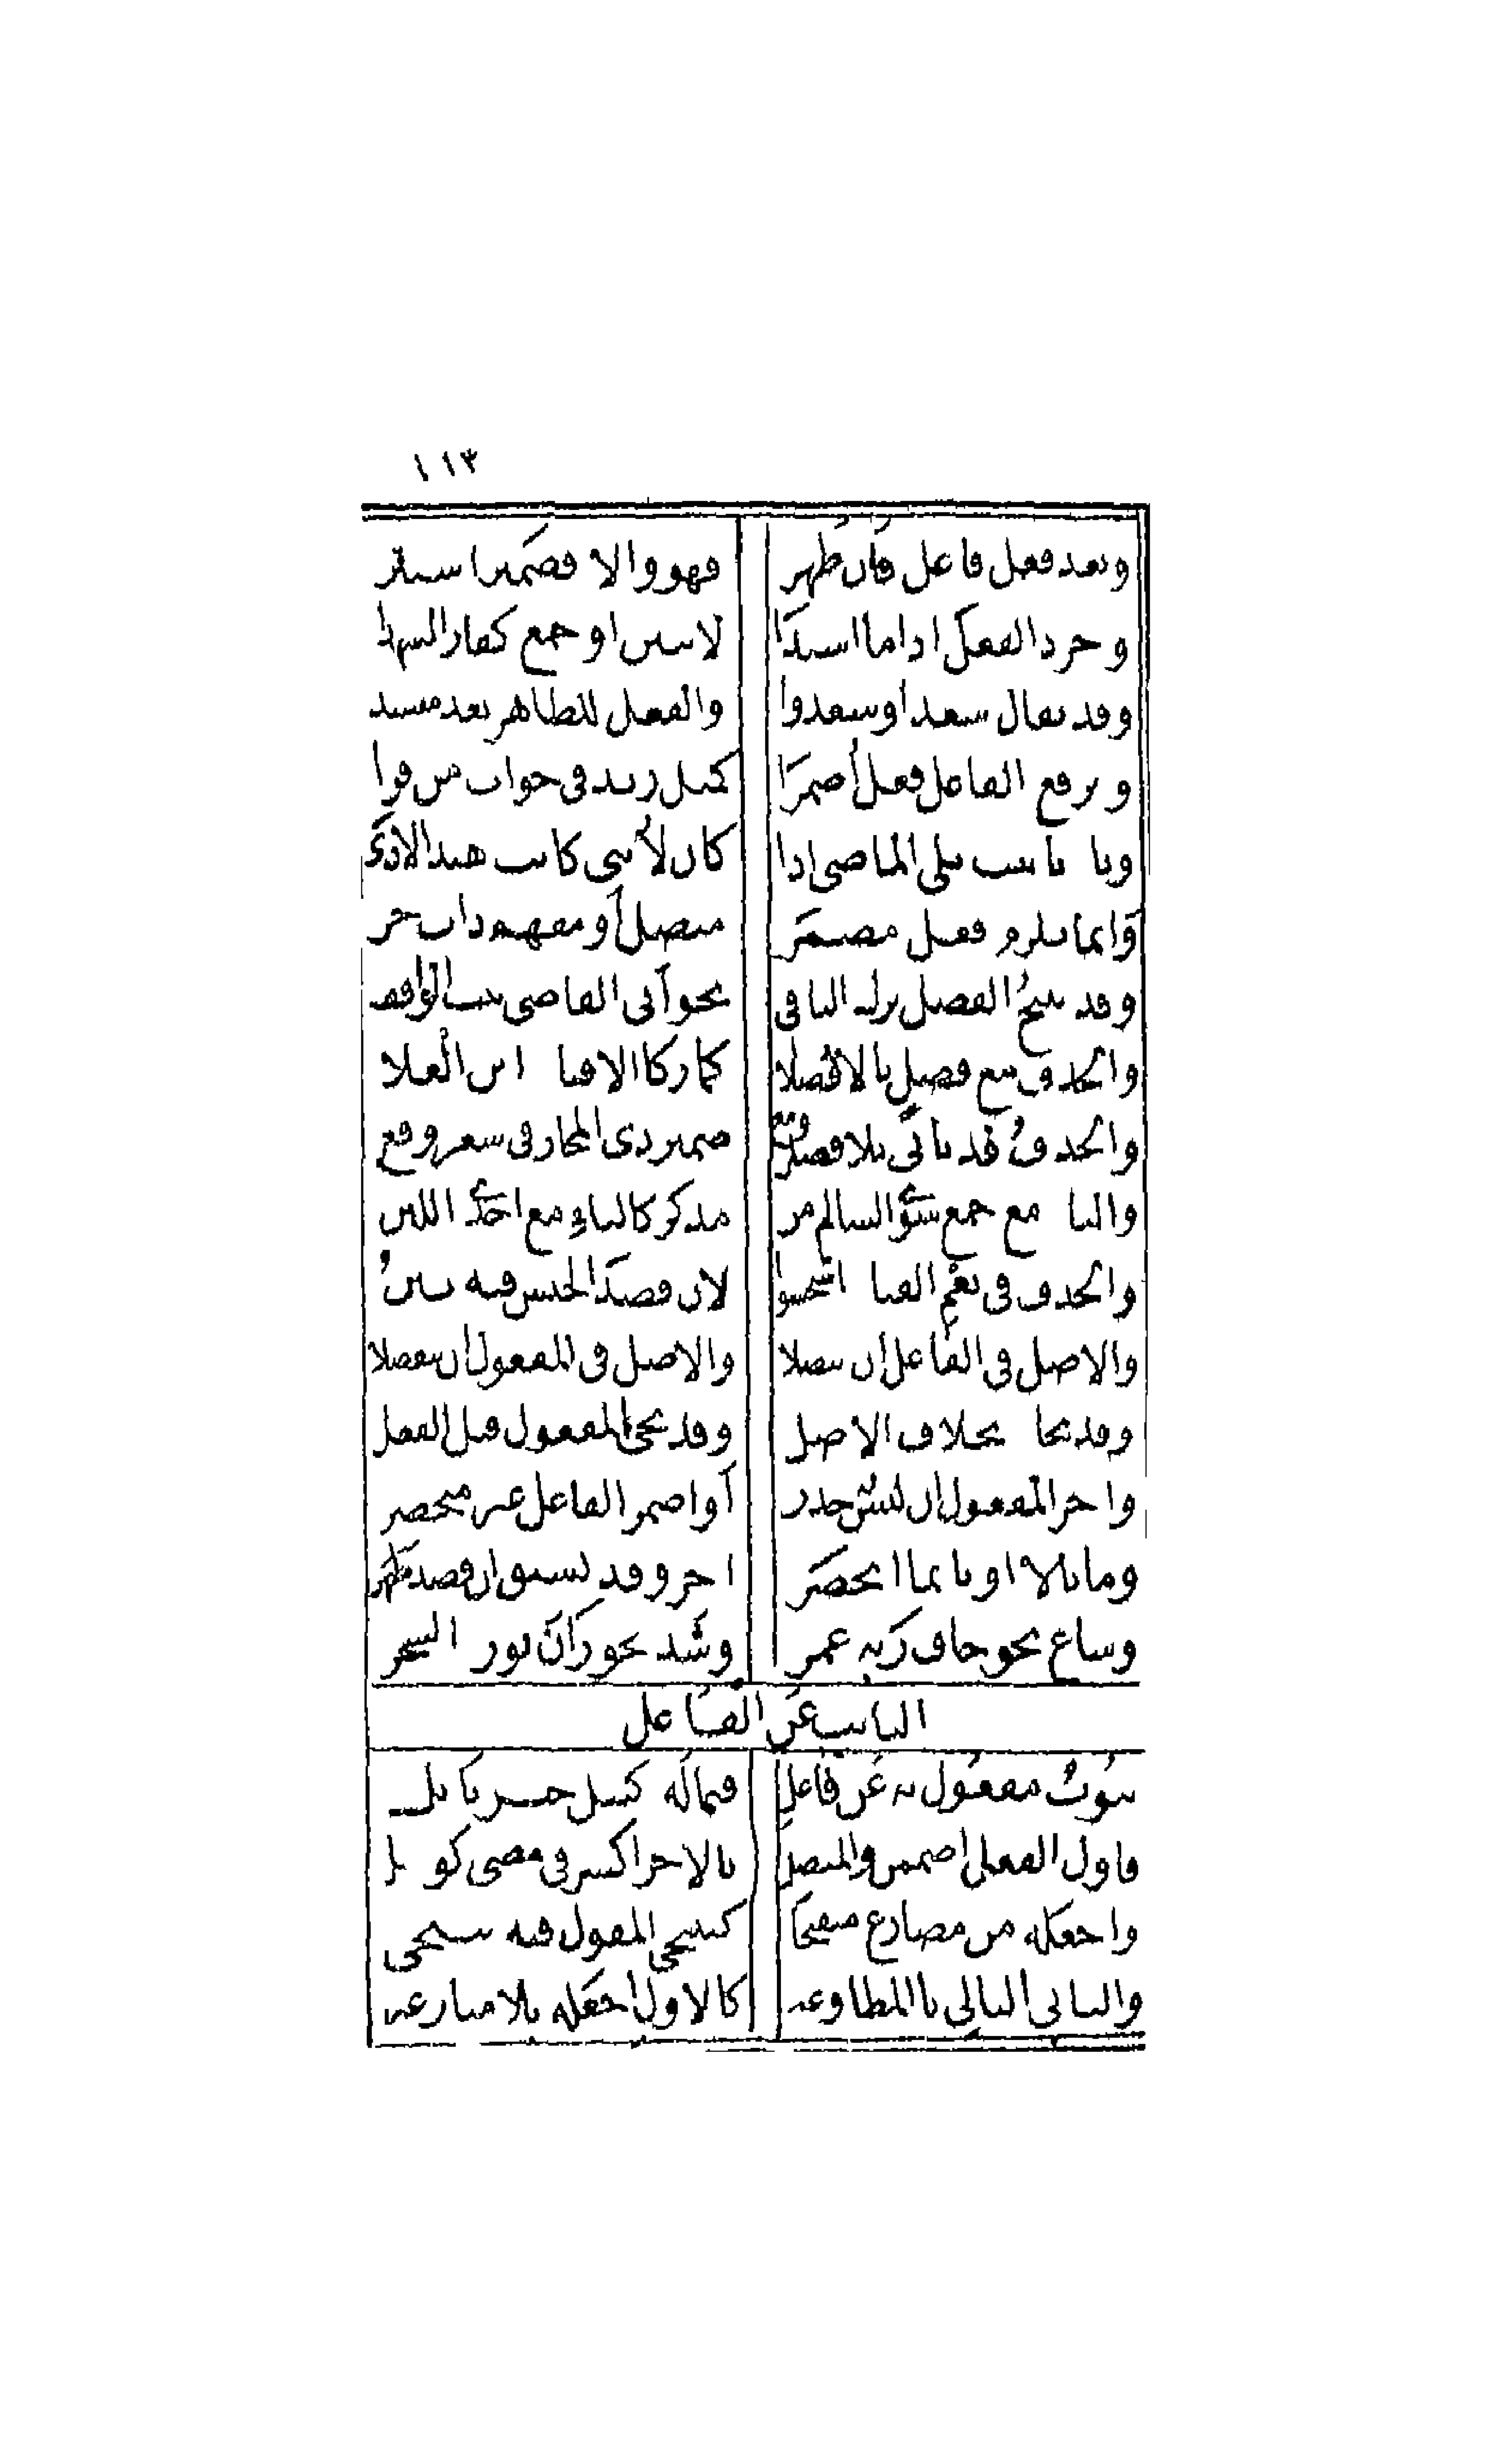 ١١٣
وبعد فعل فاعل فإن ظهر فهو وإلا فضمير استتر
وجرد الفعل إذا ما أسندا لاثنين أو جمع كفاز الشهدا
وقد يقال سعدا وسعدوا والفعل للظاهر بعد مسند
ويرفع الفاعل فعل أضمرا كمثل زيد في جواب من قرا
وتاء تأنيث تلي الماضي إذا كان لأنثى كأبت هند الأذى
وإنما تلزم فعل مضمر متصل أو مفهم ذات حر
وقد يبيح الفصل ترك التاء في نحو أتى القاضي بنت الواقف
والحذف مع فصل بإلا فضلا كما زكا إلا فتاة ابن العلا
والحذف قد يأتي بلا فصل ومع ضمير ذي المجاز في شعر وقع
والتاء مع جمع سوى السالم من مذكر كالتاء مع إحدى اللبن
والحذف في نعم الفتاة استحسنوا لأن قصد الجنس فيه بين
والأصل في الفاعل أن يتصلا والأصل في المفعول أن ينفصلا
وقد يجاء بخلاف الأصل وقد يجي المفعول قبل الفعل
وأخر المفعول إن لبس حذر أو أضمر الفاعل غير منحصر
وما بإلا أو بإنما انحصر أخر وقد يسبق إن قصد ظهر
وشاع نحو خاف ربه عمر وشذ نحو زان نوره الشجر
النائب عن الفاعل
ينوب مفعول به عن فاعل فيما له كنيل خير نائل
فأول الفعل اضممن والمتصل بالآخر اكسر في مضي كوصل
واجعله من مضارع منفتحا كينتحي المقول فيه ينتحى
والثاني التالي تا المطاوعه كالأول اجعله بلا منازعه